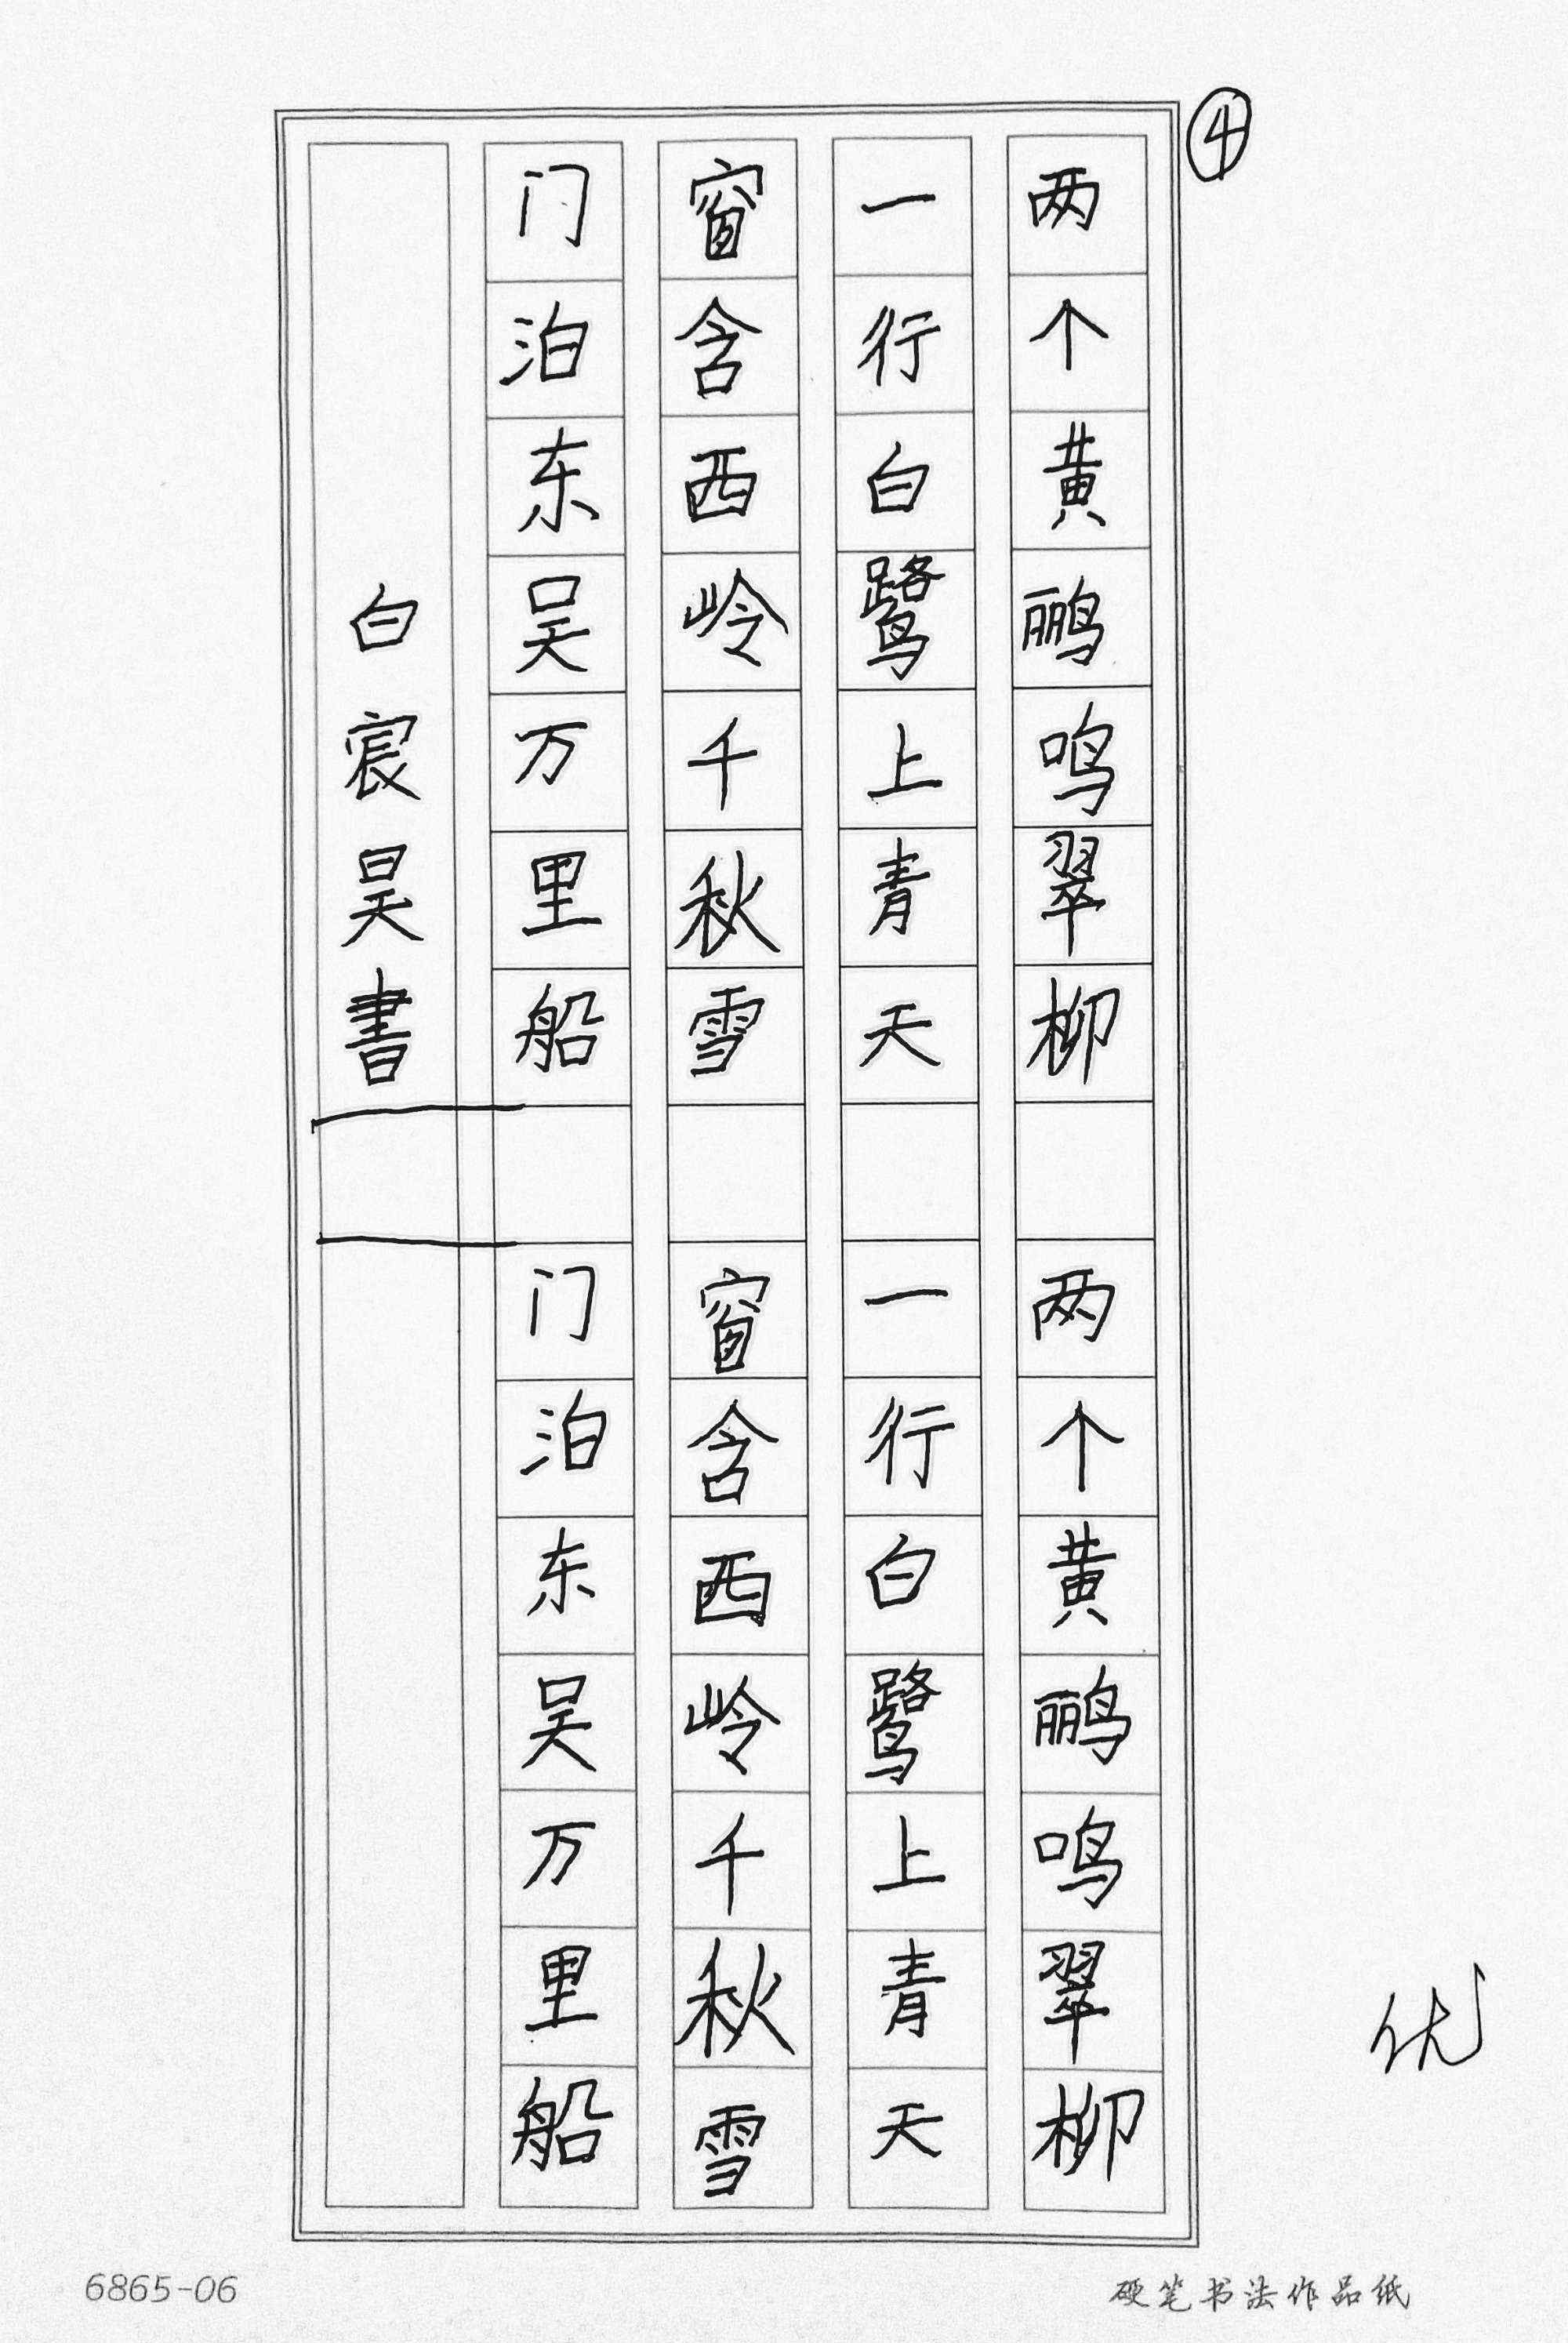 ④
两个黄鹂鸣翠柳
一行白鹭上青天
窗含西岭千秋雪
门泊东吴万里船
白宸昊書
两个黄鹂鸣翠柳
一行白鹭上青天
窗含西岭千秋雪
门泊东吴万里船
优
6865-06
硬笔书法作品纸